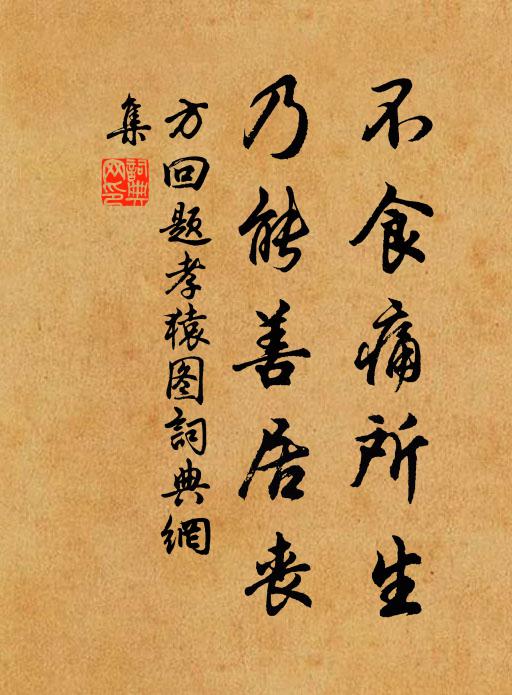 不食痛所生
乃能善居丧
方回题孝猿图词典網
集
詞典
网印